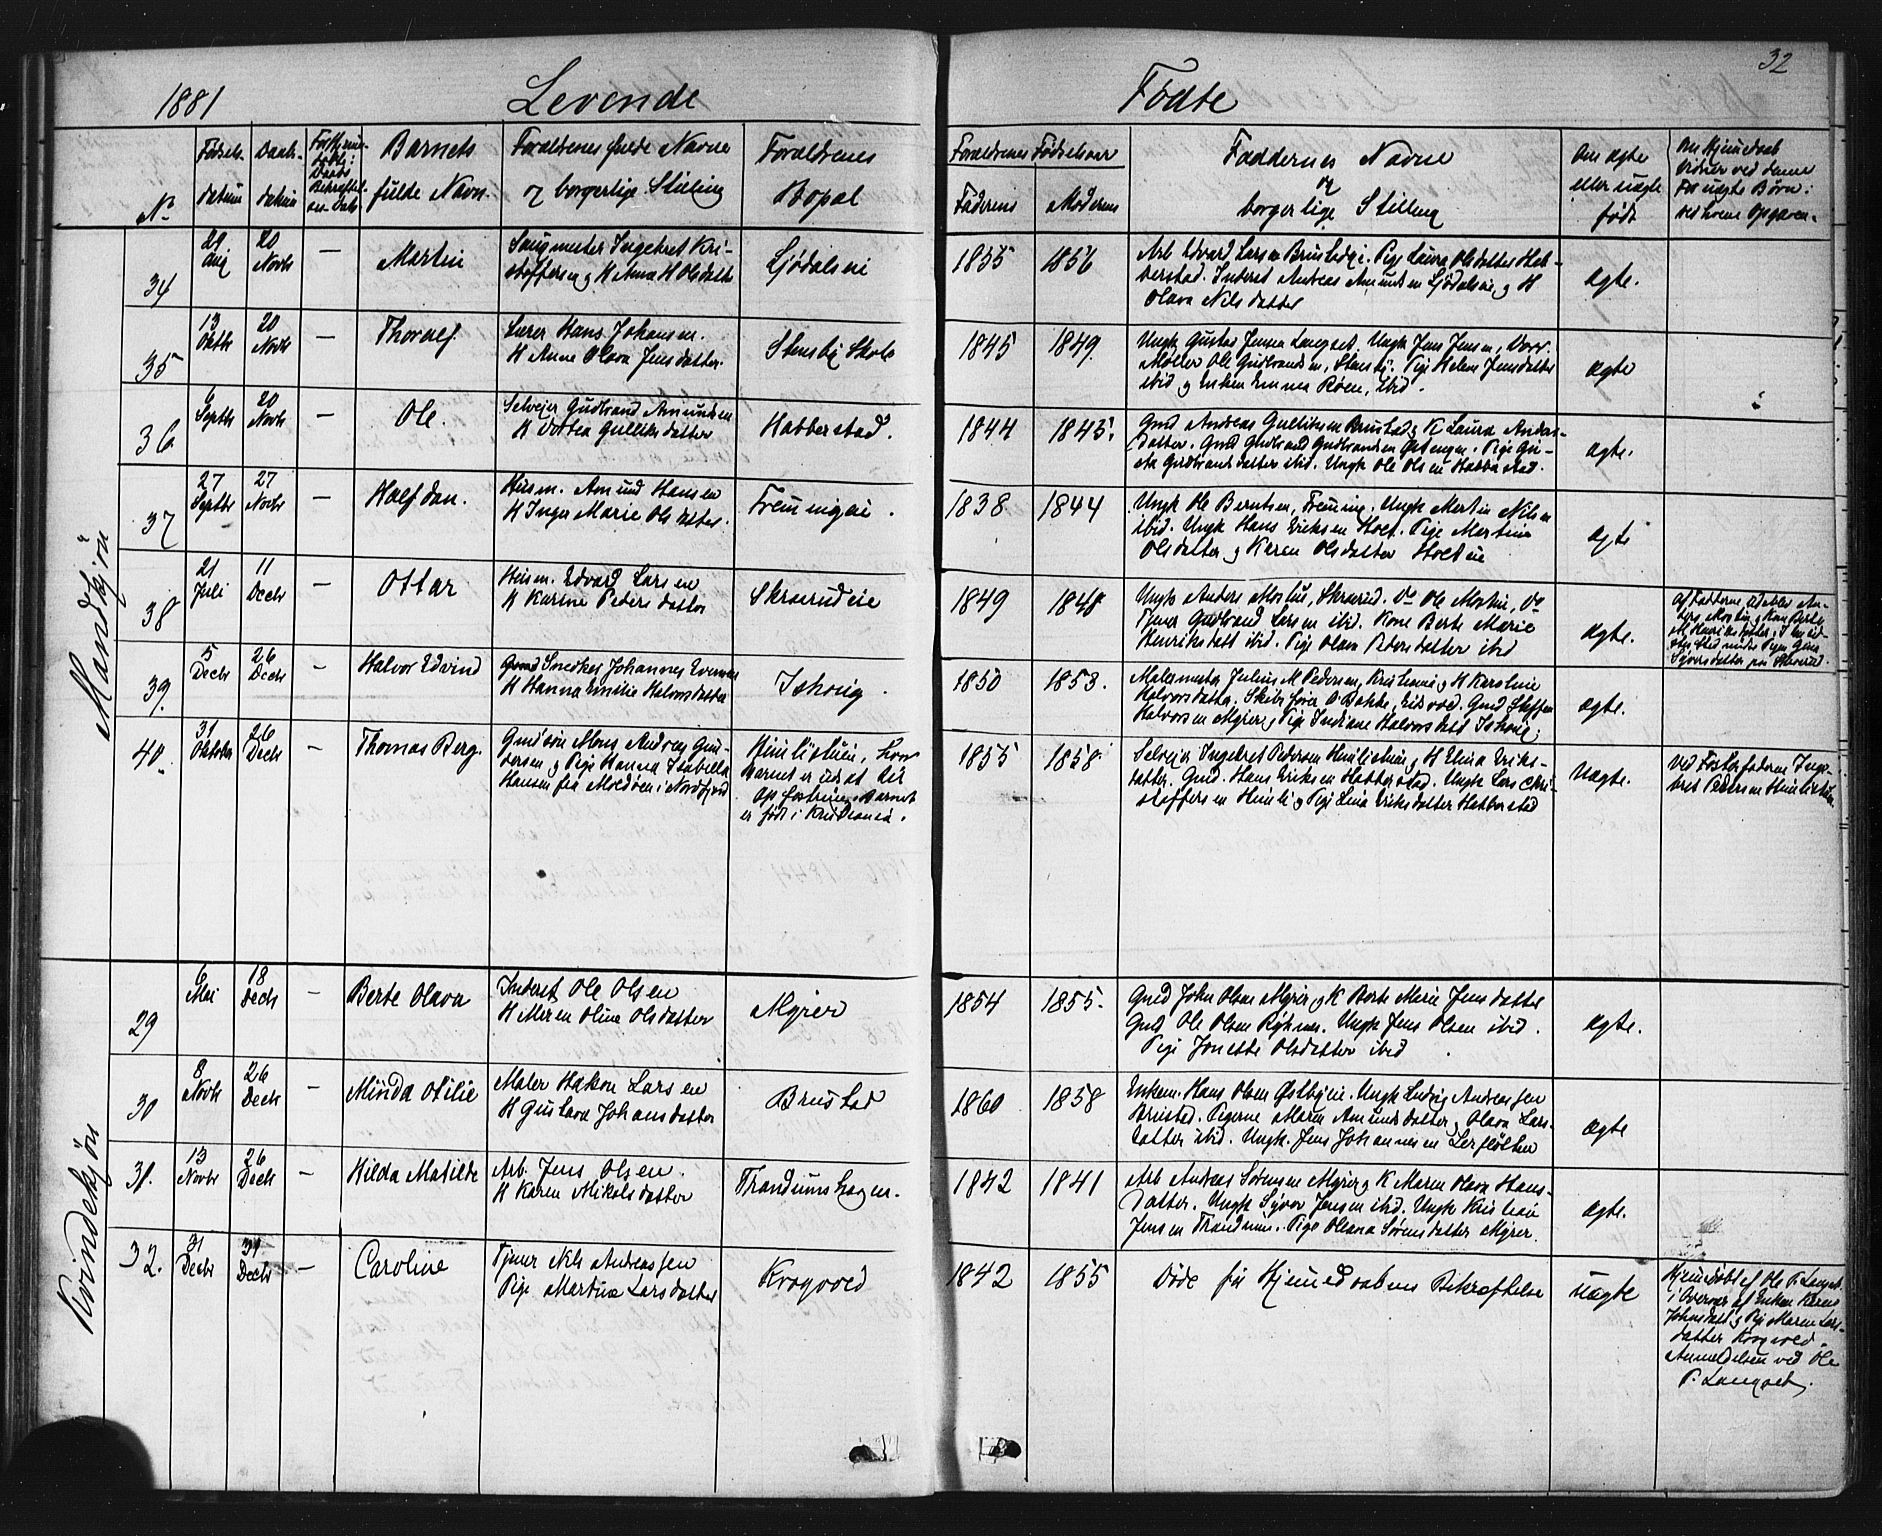 1881 Levende Fødte 32
No
Fødsels datum
Daabs datum
Barnets fulde Navn.
Forældrenes fulde Navne
og borgerlige Stilling
Forældrenes Bopæl
Forældrenes Fødselsaar
Faderens Moderens
Faddernes Navne
og
borgerlige Stilling
Om ægte
eller uægte
født
Mandkjøn
34 29 Aug 20 Novbr — Martin
Saugmester Ingebret Kri-
stoffersen og H Anna H Olsdatter
Sjødalseie
1855 1856
Arb Edvard Larsen Pige Laura Olsdatter Hab-
berstad. Inderst Andreas Amundsen Sjødalseie og H
Olava Nilsdatter
ægte.
35 13 Oktbr 20 Novbr — Thoralf
Lærer Hans Johansen.
H Anne Olava Jensdatter.
Stensby Skole
1845 1849.
Ungk Gustav Jensen Langset. Ungk Jens Jensen, Dorr.
Møller Ole Gudbrandsen, Stensby. Pige Helene Jensdatter
ibid og Enken Emma Røen, ibid.
ægte
36 6 Septbr 20 Novbr — Ole.
Selveier Gudbrand Amundsen
H Dortea Gulliksdatter
Habberstad.
1844 1845.
Gmd Andreas Gulliksen Brustad og K Laura Anders-
datter. Gmd Gudbrand Gudbrandsen Østengen. Pige Gu-
sta Gudbrandsdatter ibid. Ungk Ole Olsen Habberstad.
ægte.
37 27 Septbr 27 Novbr — Halfdan.
Husm. Amund Hansen
H Inger Marie Olsdatter.
Fremingeie.
1838 1844
Ungk Ole Berntsen, Freming. Ungk Martin Nilsen
ibid. Ungk Hans Eriksen Holt. Pige Martina
Olsdatter og Karen Olsdatter Holteie
ægte
38 21 Juli 11 Decbr — Ottar
Husm. Edvard Larsen
H Karine Petersdatter
Skrærudeie
1849 1848
Ungk Anders Moslii, Skrærud. Do Ole Mortin, Do
Tjener Gudbrand Larsen ibid. Kone Berte Marie
Henriksdatt ibid. Pige Olava Petersdatter ibid
ægte.
39. 5 Decbr 26 Decbr Halvor Edvind
Snedker Johannes Evensen
H Hanna Emilie Halvorsdatter
Ishoug.
1850 1853.
Malermester Julius M Pedersen, Kristiania og H Karoline
Halvorsdatter. Skibsfører O Bakke, Eidsvold. Gmd Steffen
Halvorsen Myrer og Pige Indiane Halvorsdatt Ishoug.
ægte.
40. 31 Oktober 26 Decbr — Thomas Berg.
Gmdsøn Mons Andreas Gun-
dersen og Pige Hanna Isabella
Hansen fra Moldøen i Nordfjord
Himlistuen, hvor
Barnet er udsat til
Opfostring. Barnet
er født i Kristiania.
1855 1858.
Selveier Ingebret Pedersen Himlistuen og H Elina Eriks-
datter. Gmd. Hans Eriksen Habberstad. Ungk Lars Chri-
stoffersen Himli og Pige Lina Eriksdatter Habberstad
Uægte.
ved Fosterfaderen Inge-
bret Pedersen Himlistuen
Kvindekjøn
29 6 Mai 18 Decbr — Berte Olava
Inderst Ole Olsen
H Maren Oline Olsdatter
Myrer
1854 1855.
Gmd John Olsen Myrer og K Berte Marie Jensdatter
Gmd Ole Olsen Røknes. Ungk Jens Olsen ibid.
Pige Jonette Olsdatter ibid
ægte.
30 8 Novbr 26 Decbr — Minda Otilie
Maler Hakon Larsen
H Gustava Johansdatter
Brustad
1860 1858
Enkem. Hans Olsen Østbyeie. Ungk Ludvig Andreassen
Brustad. Pigerne Maren Amundsdatter og Olava Lars-
datter ibid. Ungk. Jens Johannesen Lerfloten
ægte
31. 13 Novbr 26 Decbr — Hilda Matilde
Arb. Jens Olsen.
H Karen Mikalsdatter
Trandumshagen.
1842 1841
Arb Andreas Sørensen Myrer og K Maren Olava Hans-
datter. Ungk Syver Jensen ibid. Ungk Kristian
Jensen Trandum. Pige Oleana Sørensdatter Myrer.
ægte.
32. 31 Decbr 31 Decbr — Caroline
Tjener Nils Andreassen
Pige Martina Larsdatter
Krogvold
1842 1855
Døde før Hjemmedaabens Bekræftelse
uægte
Hjemmedøbt af Ole P. Langset
i Overvær af Enken Karen
Johnsdatt og Pige Maren Lars-
datter Krogvold.
Anmeldelsen ved Ole
P. Langset.